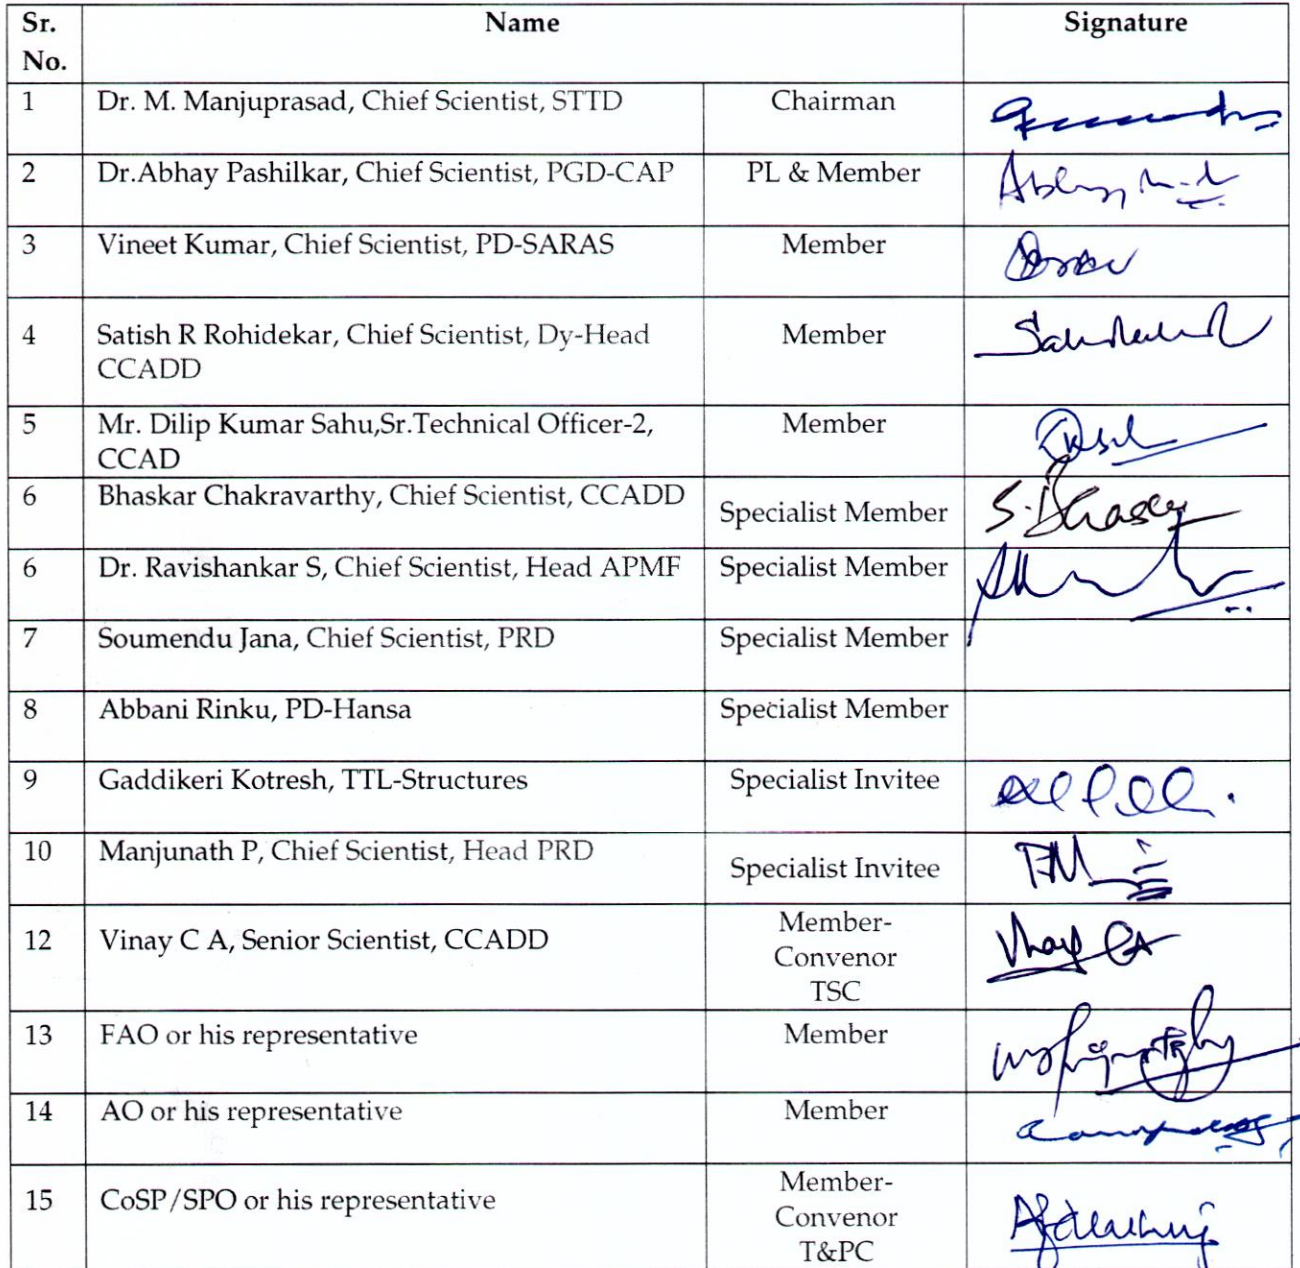 Sr. No. Name Signature
1 Dr. M. Manjuprasad, Chief Scientist, STTD Chairman
2 Dr.Abhay Pashilkar, Chief Scientist, PGD-CAP PL & Member
3 Vineet Kumar, Chief Scientist, PD-SARAS Member
4 Satish R Rohidekar, Chief Scientist, Dy-Head Member
CCADD
5 Mr. Dilip Kumar Sahu,Sr.Technical Officer-2, Member
CCAD
6 Bhaskar Chakravarthy, Chief Scientist, CCADD Specialist Member
6 Dr. Ravishankar S, Chief Scientist, Head APMF Specialist Member
7 Soumendu Jana, Chief Scientist, PRD Specialist Member
8 Abbani Rinku, PD-Hansa Specialist Member
9 Gaddikeri Kotresh, TTL-Structures Specialist Invitee
10 Manjunath P, Chief Scientist, Head PRD Specialist Invitee
12 Vinay C A, Senior Scientist, CCADD Member-
Convenor
TSC
13 FAO or his representative Member
14 AO or his representative Member
15 CoSP/SPO or his representative Member-
Convenor
T&PC